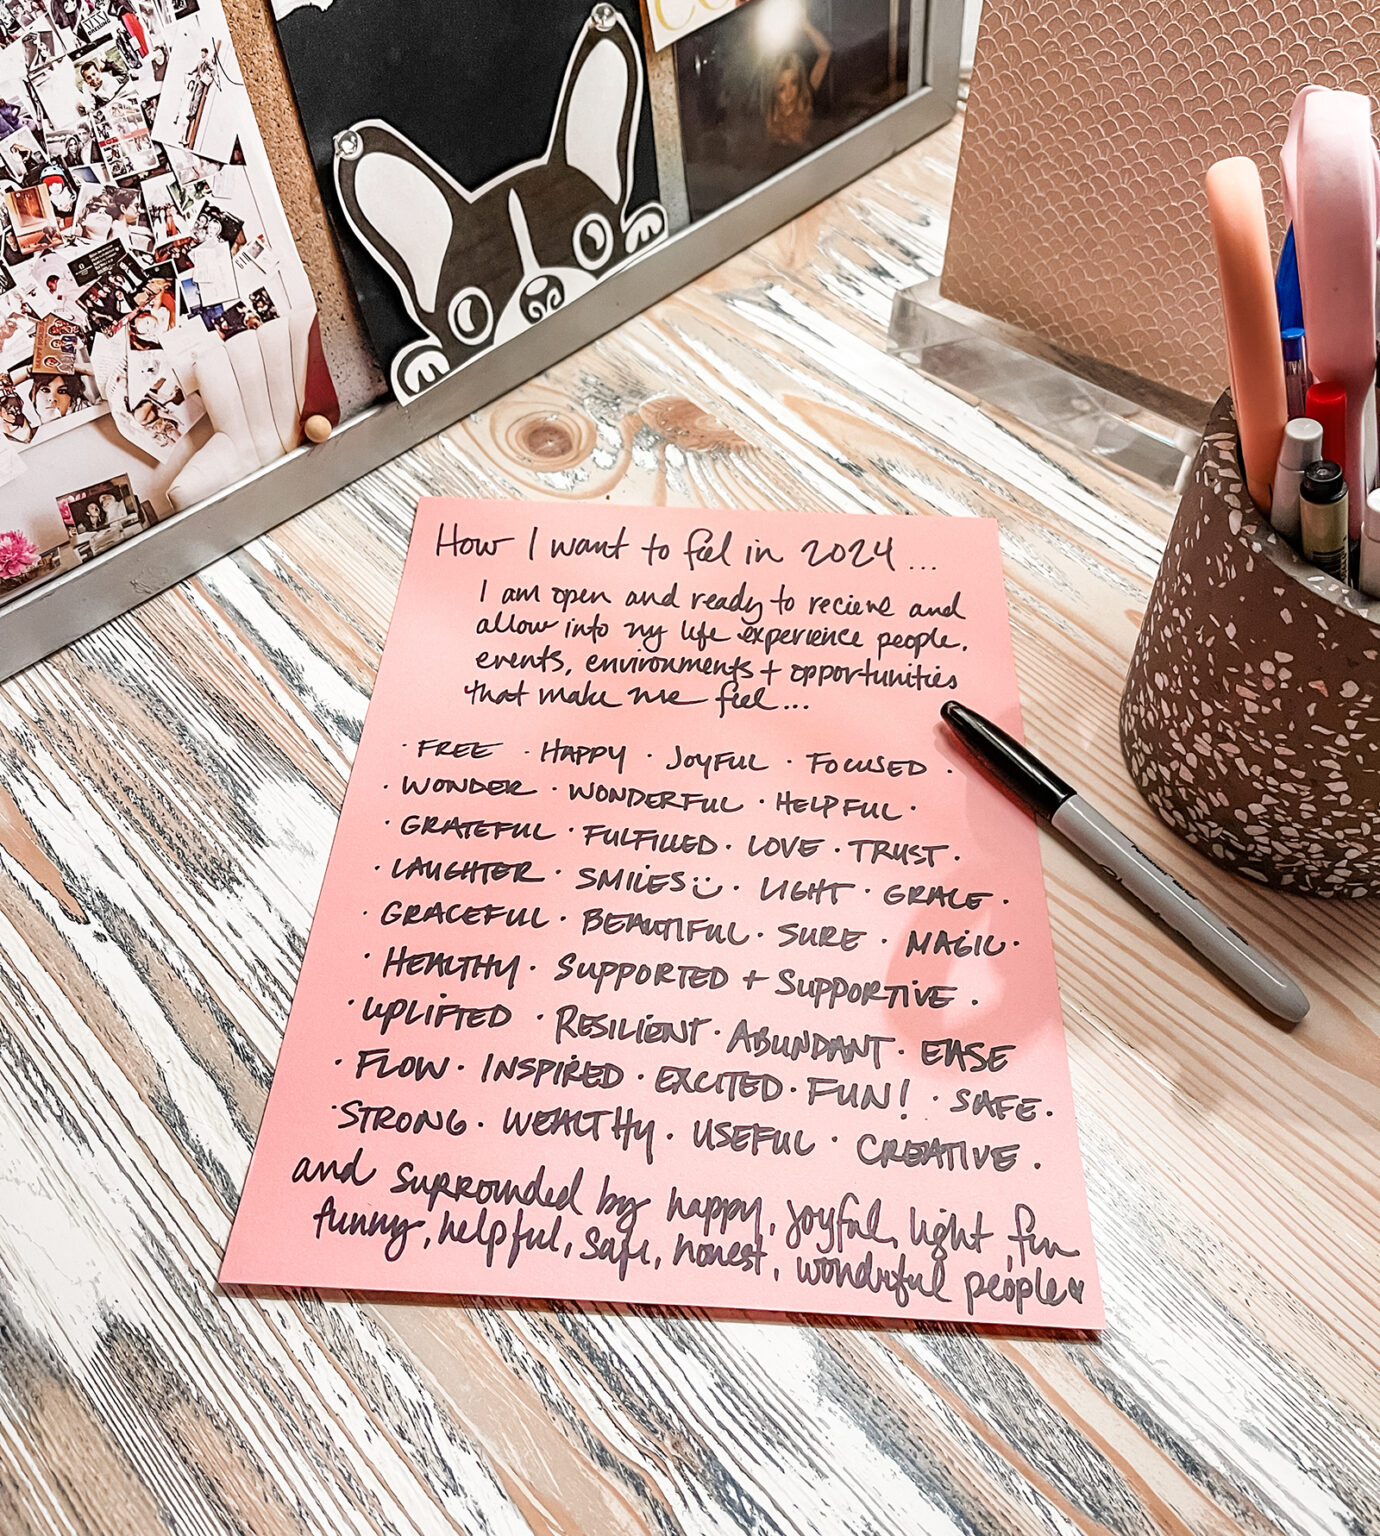 How I want to feel in 2024...
I am open and ready to recieve and
allow into my life experience people,
events, environments + opportunities
that make me feel...
· FREE · HAPPY · JOYFUL · FOCUSED ·
· WONDER · WONDERFUL · HELPFUL ·
· GRATEFUL · FULFILLED · LOVE · TRUST ·
· LAUGHTER · SMILES · LIGHT · GRACE ·
· GRACEFUL · BEAUTIFUL · SURE · MAGIC ·
· HEALTHY · SUPPORTED + SUPPORTIVE ·
· UPLIFTED · RESILIENT · ABUNDANT · EASE
· FLOW · INSPIRED · EXCITED · FUN! · SAFE ·
· STRONG · WEALTHY · USEFUL · CREATIVE ·
and surrounded by happy, joyful, light, fun
funny, helpful, safe, honest, wonderful people♥